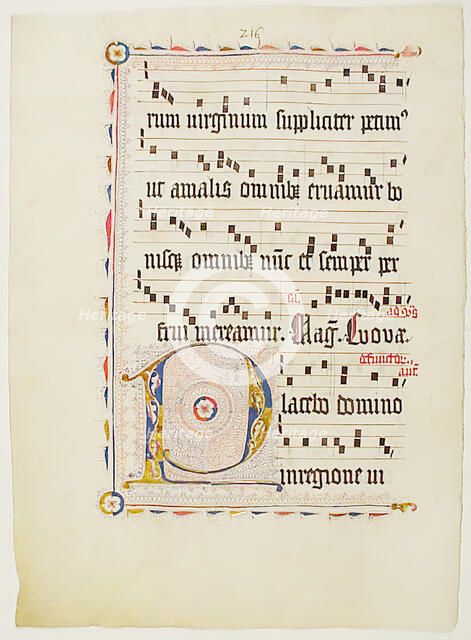 216
rum uirginum suppliciter petim⁹
ut a malis omnibꝫ eruamur bo
nisqꝫ omnibꝫ nūc et semper per
frui mereamur. Mag̃. Euouae.
defunctor.
añt.
Placebo domino
in regione ui